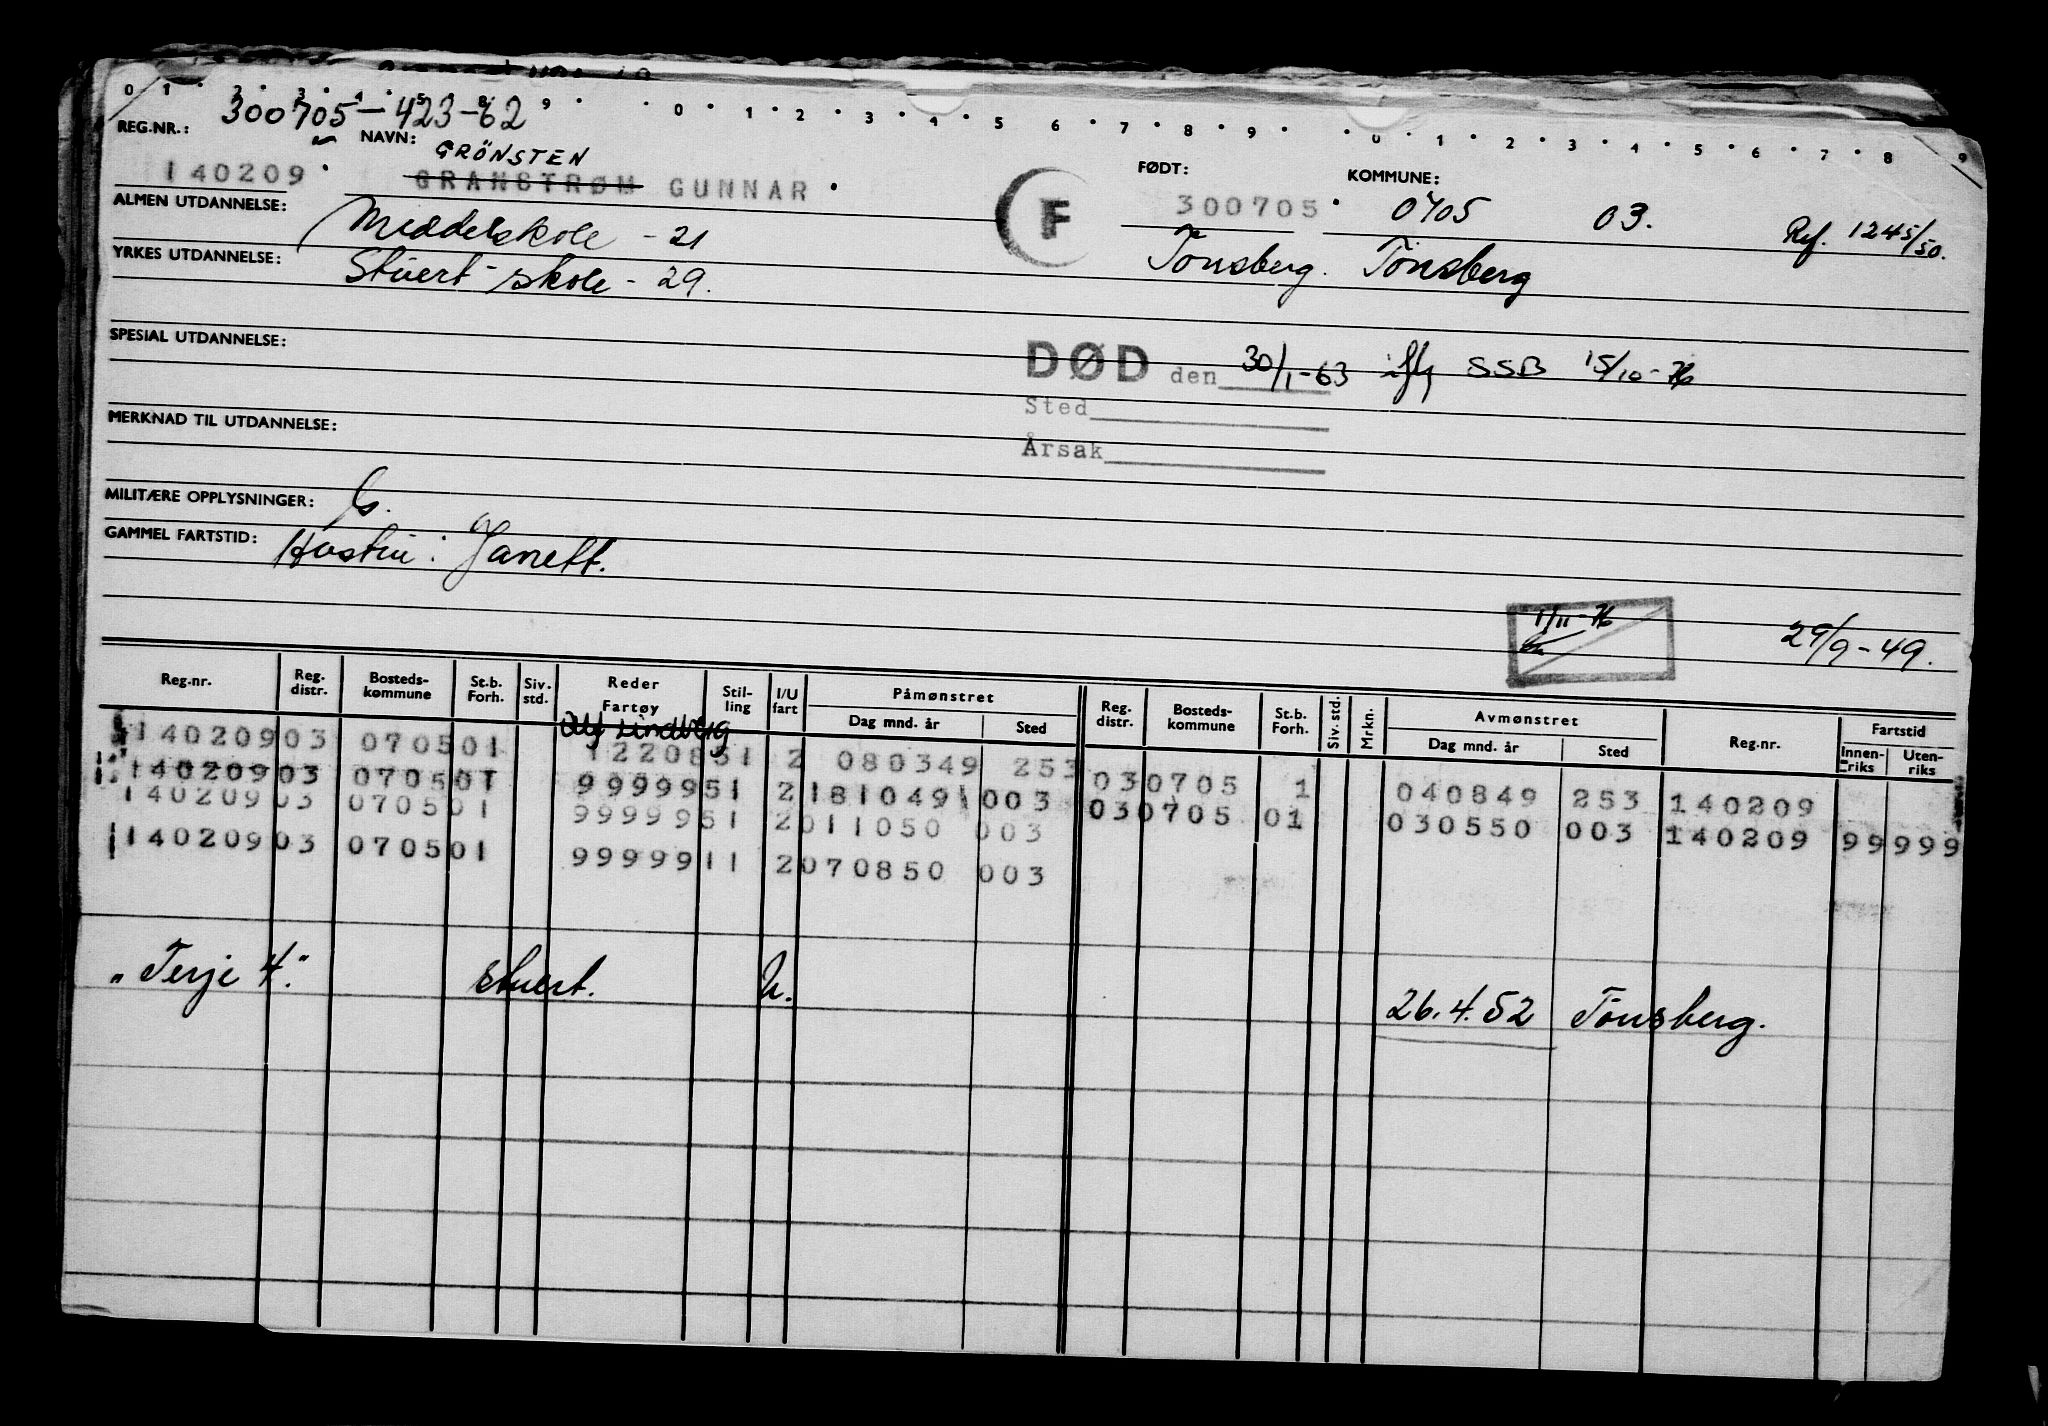 0 1 2 3 4 5 8 9 0 1 2 3 4 5 6 7 8 9 0 1 2 3 4 5 6 7 8 9
300705-423-62
REG.NR.: NAVN: GRÖNSTEN FØDT: KOMMUNE:
140209 GRANSTRØM GUNNAR F 300705 0705 03. Ref. 1245/50.
ALMEN UTDANNELSE: Middelskole - 21 Tønsberg. Tönsberg
YRKES UTDANNELSE: Stuert-skole - 29.
SPESIAL UTDANNELSE:
DØD den 30/1-63 iflg SSB 15/10-76
Sted
MERKNAD TIL UTDANNELSE:
Årsak
MILITÆRE OPPLYSNINGER:
GAMMEL FARTSTID: Hustru: Janett.
1/11-76 29/9-49.
Reg.nr. Reg. distr. Bosteds-kommune St.b. Forh. Siv. std. Reder Fartøy Stil-ling I/U fart Påmønstret Dag mnd. år Sted Reg. distr. Bosteds-kommune St.b. Forh. Siv. std. Mrkn. Avmønstret Dag mnd. år Sted Reg.nr. Fartstid Innen-riks Uten-riks
Alf Lindberg
140209 03 0705 01 12208 51 2 080349 253 03 0705 1 040849 253 140209
140209 03 0705 01 99999 51 2 181049 003 03 0705 01 030550 003 140209 99 999
140209 03 0705 01 99999 51 2 011050 003
140209 03 0705 01 99999 11 2 070850 003
"Terje 4." stuert. U. 26.4.52 Tønsberg.